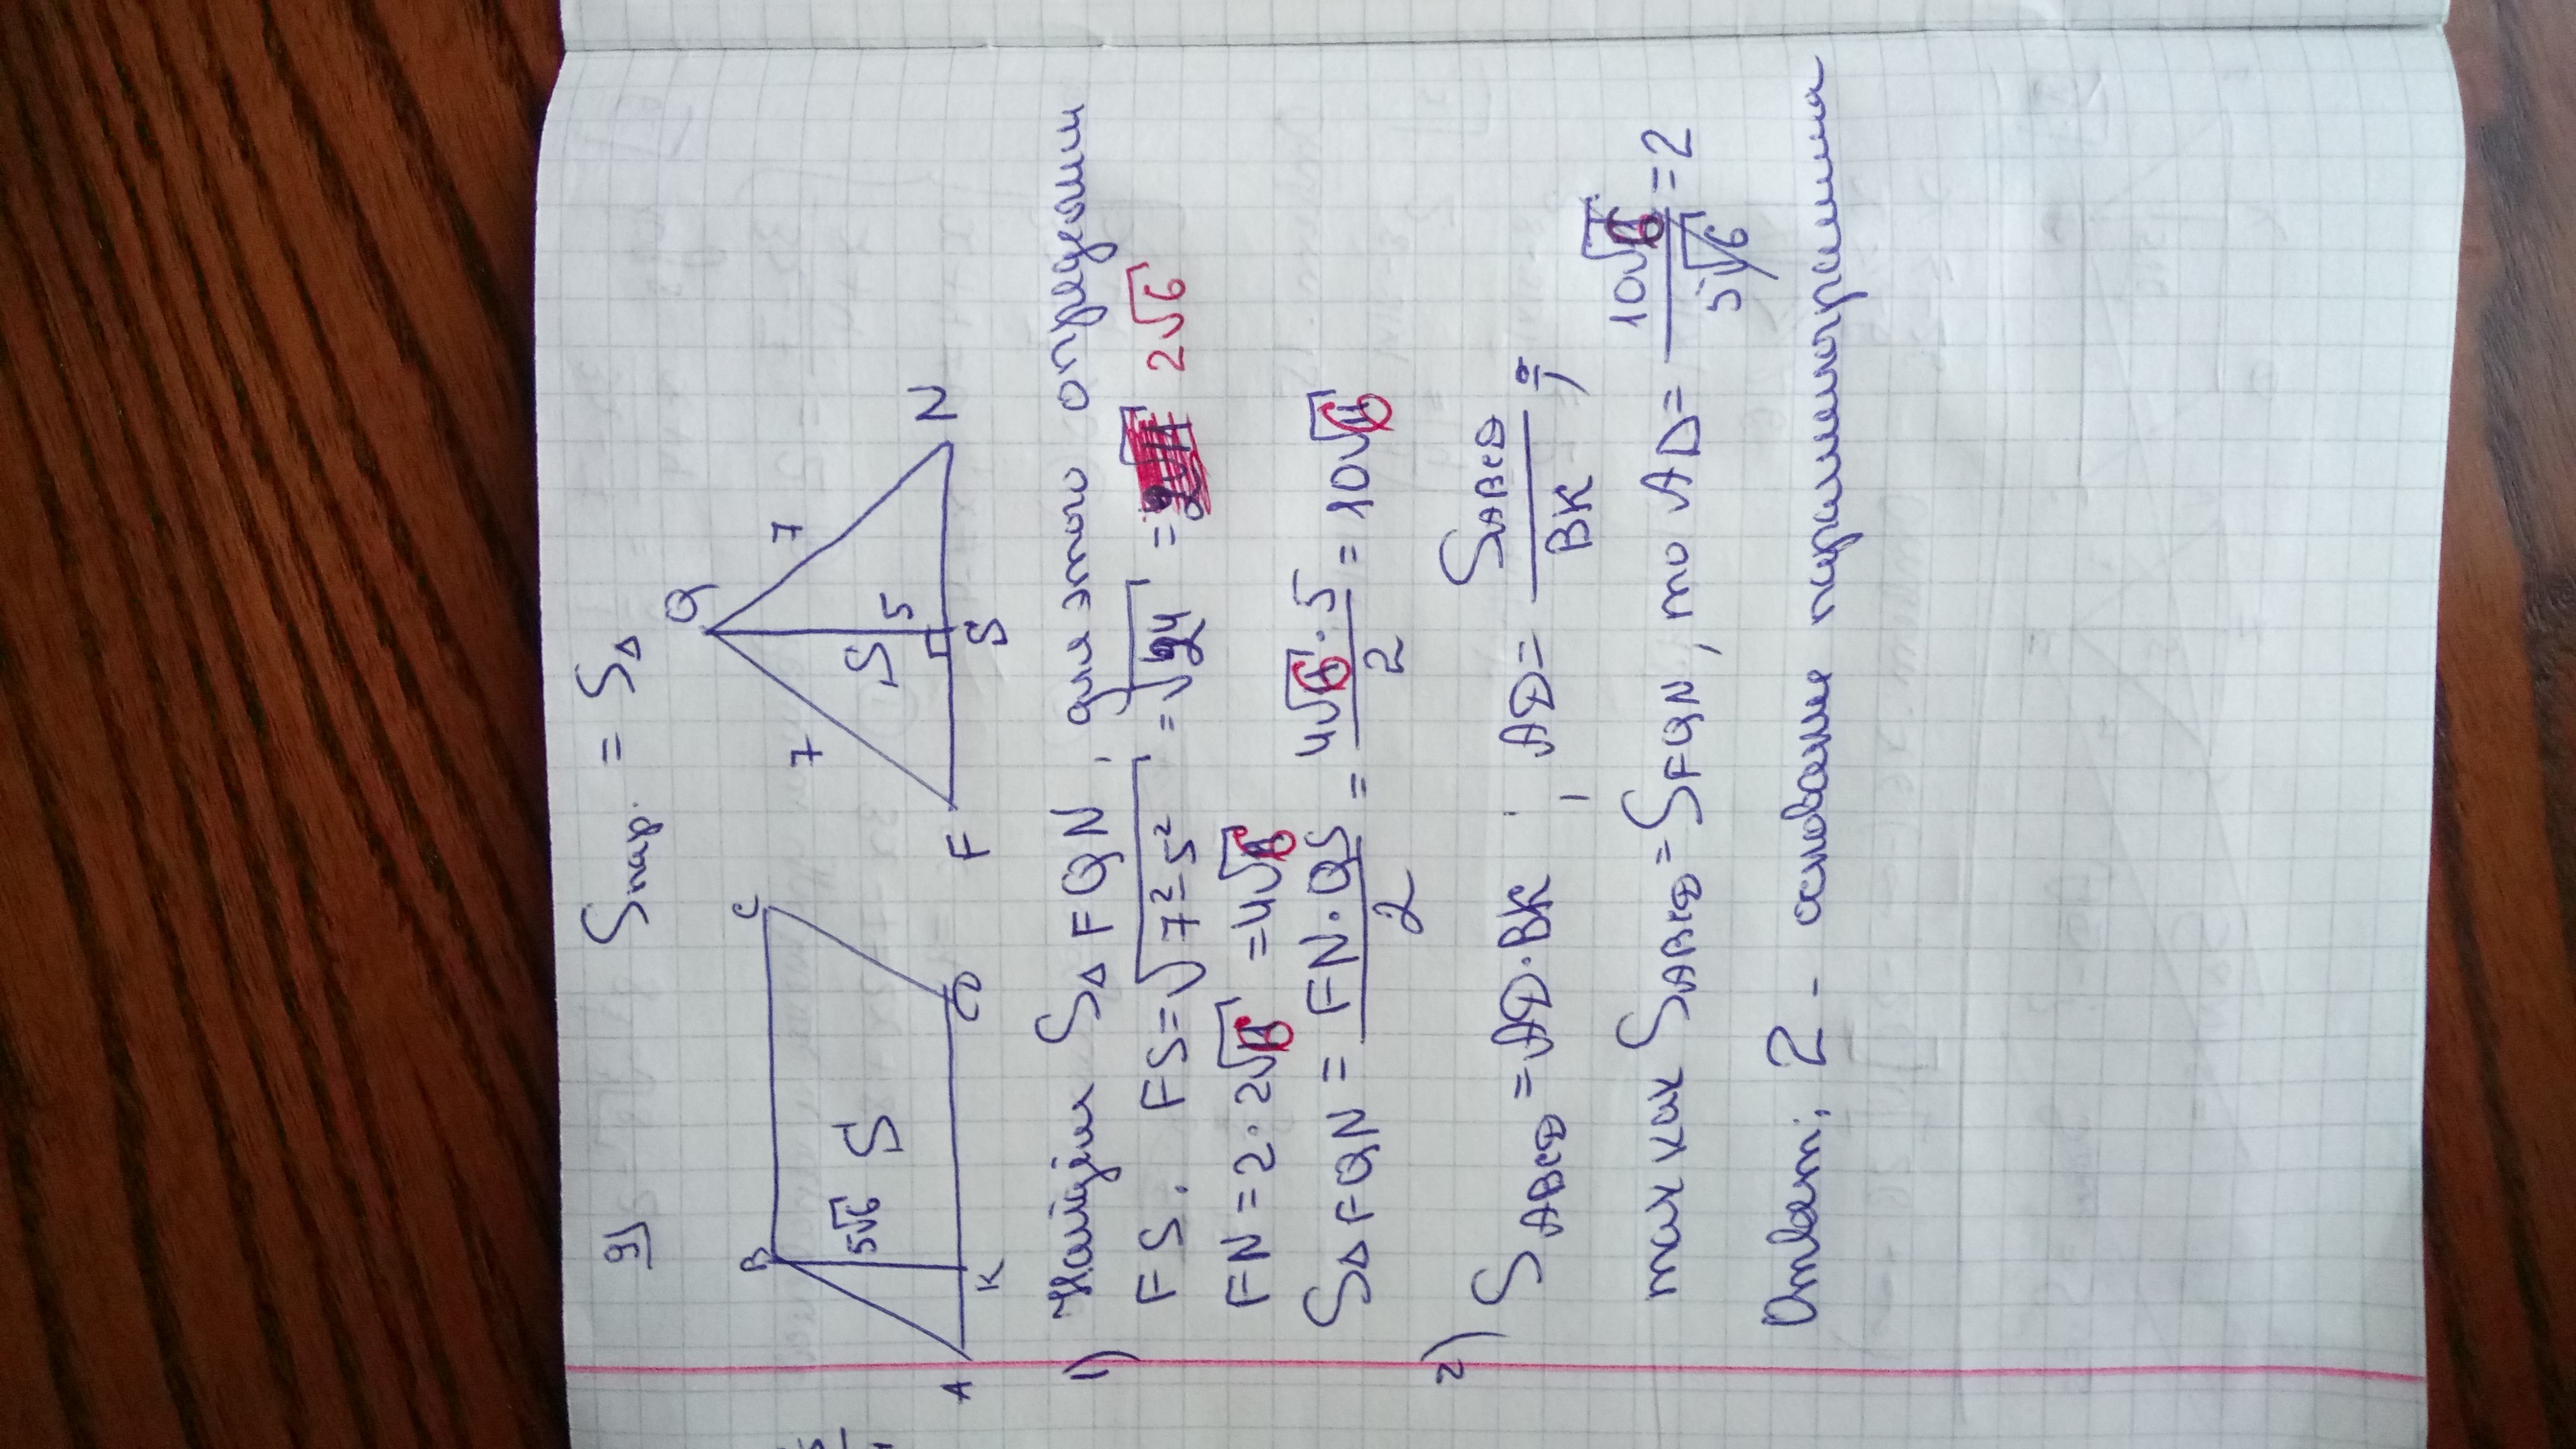 9) Sпар. = S△
B C 5√6 S A K D
Q 7 7 S 5 F S N
1) Найдём S△FQN, для этого определим
FS. FS = √7²-5² = √24 = 2√6
FN = 2·2√6 = 4√6
S△FQN = FN·QS / 2 = 4√6·5 / 2 = 10√6
2) SABCD = AD·BK ; AD = SABCD / BK ;
так как SABCD = SFQN, то AD = 10√6 / 5√6 = 2
Ответ: 2 - основание параллелограмма